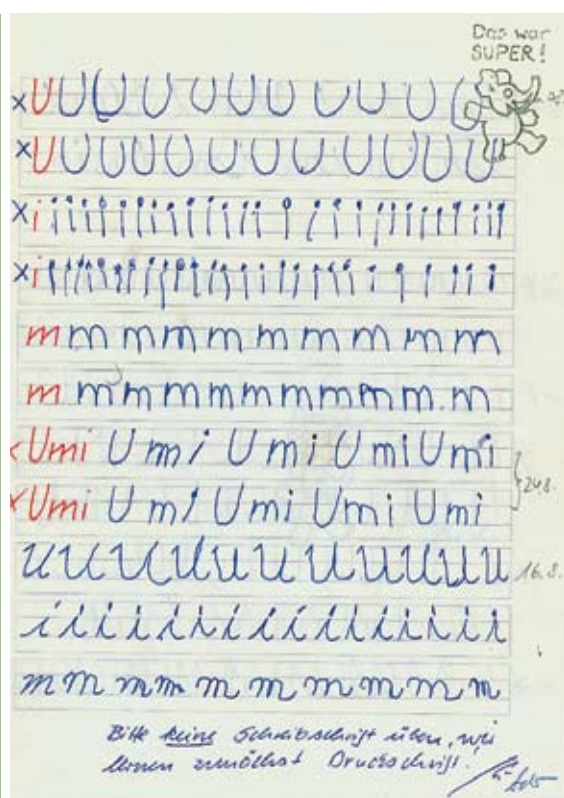 Das war
SUPER!
x U U U U U U U U U U U
x U U U U U U U U U U U U
x i i i i i i i i i i i i i i i i i i i i i i i i
x i i i i i i i i i i i i i i i i i i i i i i i
m m m m m m m m m m m
m m m m m m m m m m. m
x Umi Umi Umi Umi Umi
x Umi Umi Umi Umi Umi
24.8.
U U U U U U U U U U U U 16.8.
i i i i i i i i i i i i i i
m m m m m m m m m m m
Bitte keine Schreibschrift üben, wir
lernen zunächst Druckschrift!